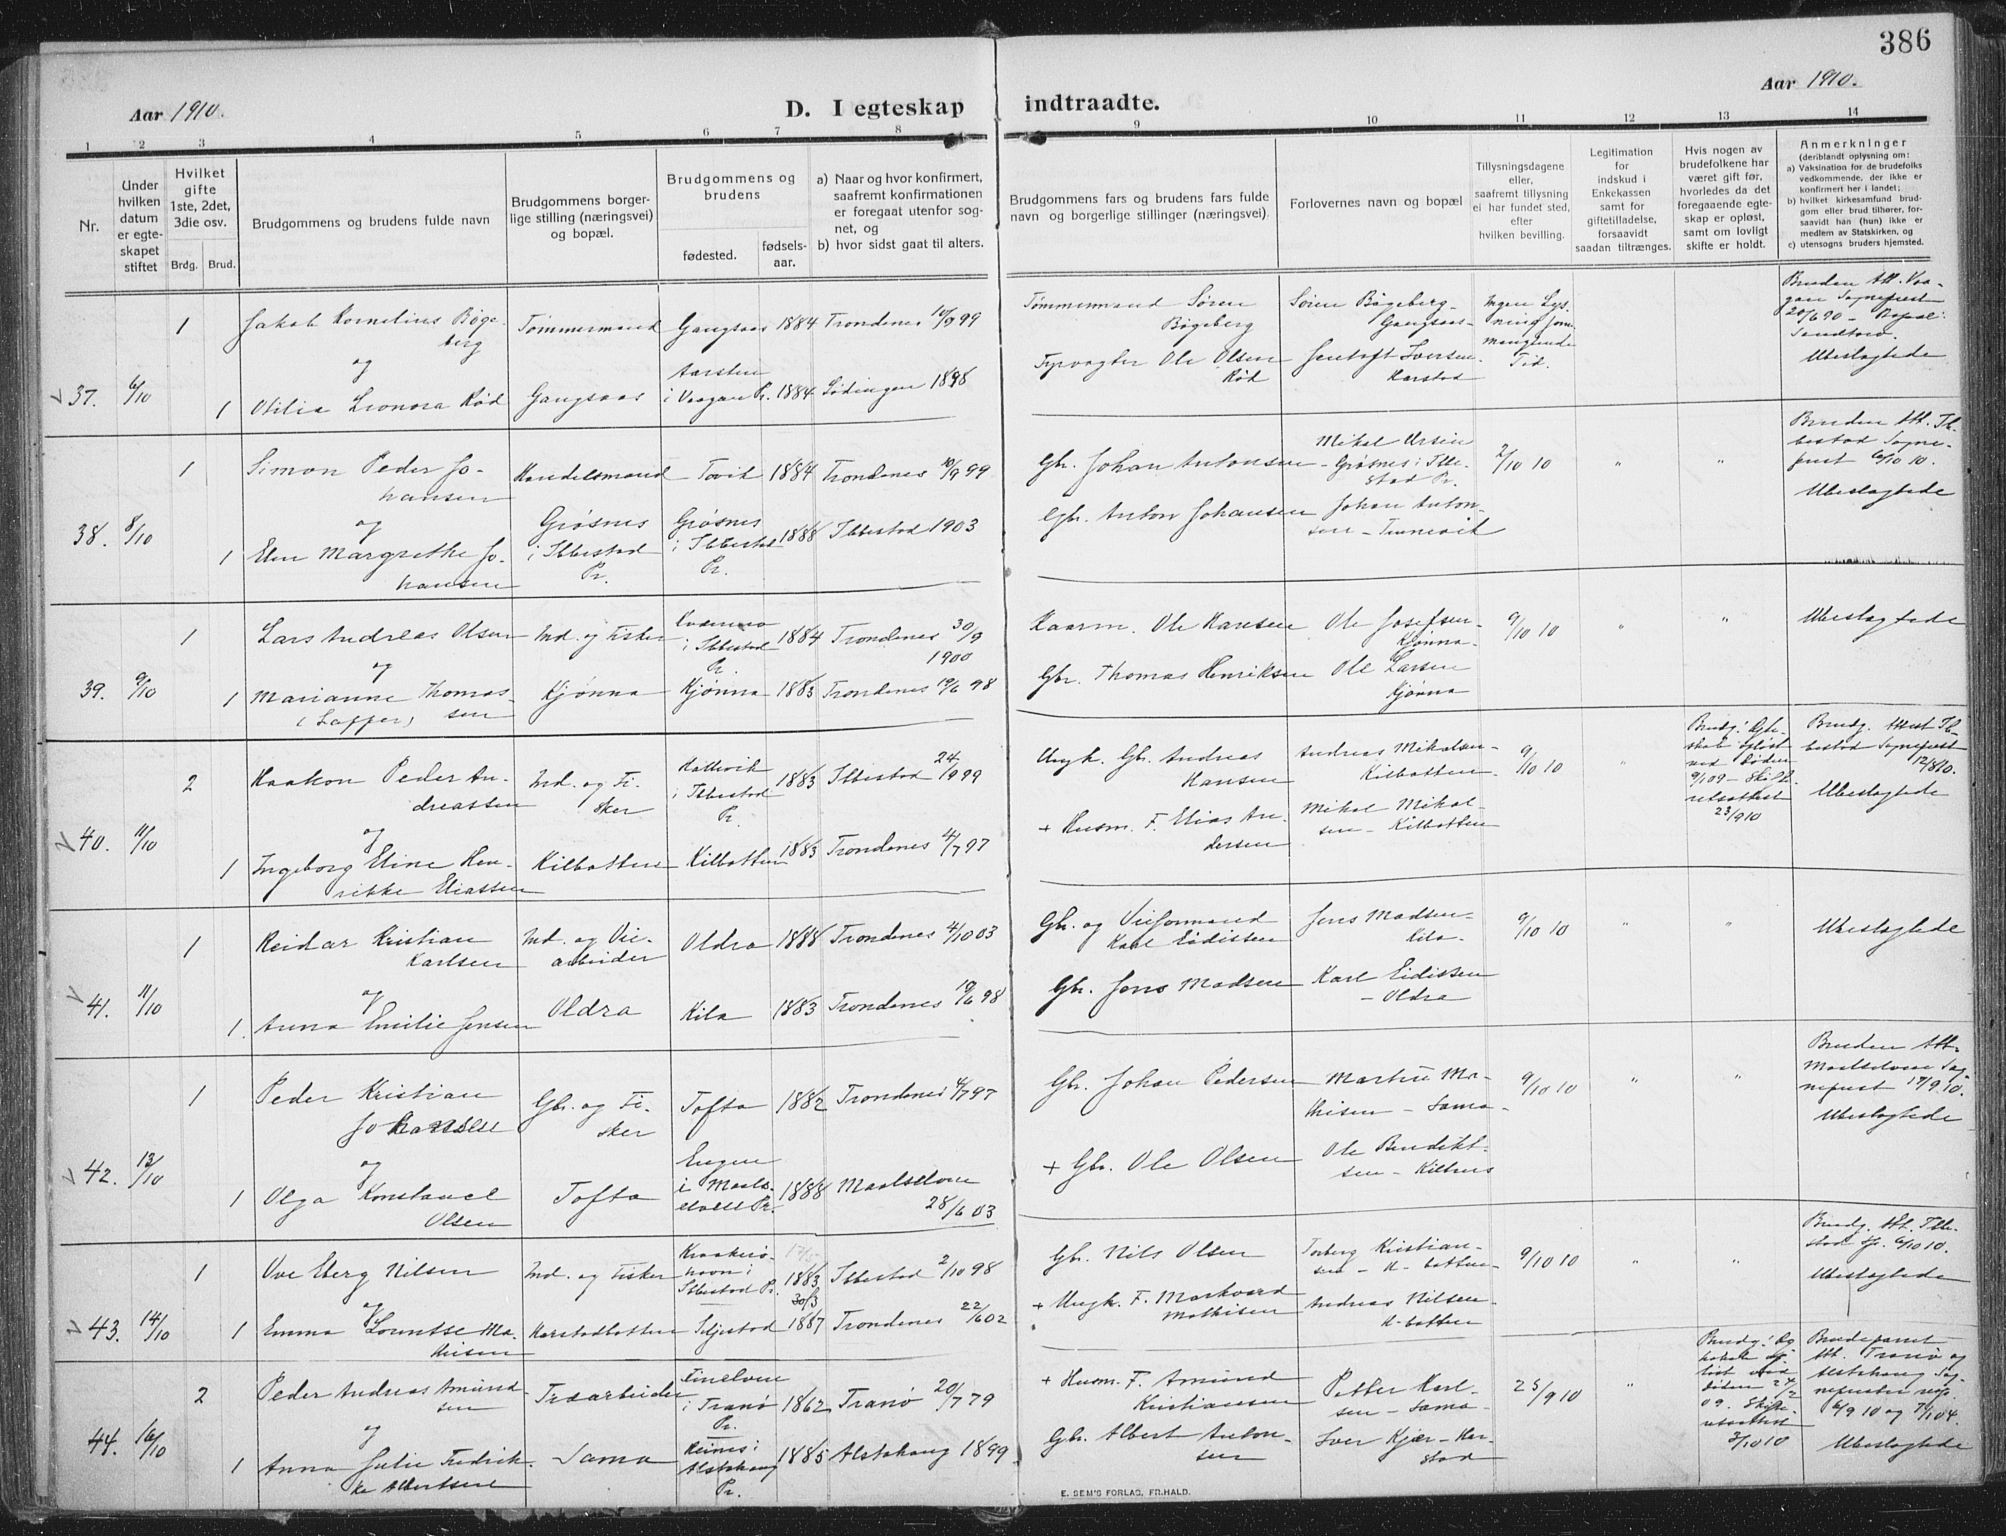 386
Aar 1910.
D. I egteskap indtraadte.
Aar 1910.
1 2 3 4 5 6 7 8 9 10 11 12 13 14
Nr.
Under hvilken datum er egteskapet stiftet
Hvilket gifte 1ste, 2det, 3die osv.
Brdg. Brud.
Brudgommens og brudens fulde navn
Brudgommens borgerlige stilling (næringsvei) og bopæl.
Brudgommens og brudens
fødested.
fødselsaar.
a) Naar og hvor konfirmert, saafremt konfirmationen er foregaat utenfor sognet, og
b) hvor sidst gaat til alters.
Brudgommens fars og brudens fars fulde navn og borgerlige stillinger (næringsvei).
Forlovernes navn og bopæl
Tillysningsdagene eller, saafremt tillysning ei har fundet sted, efter hvilken bevilling.
Legitimation for indskud i Enkekassen samt for giftetilladelse, forsaavidt saadan tiltrænges.
Hvis nogen av brudefolkene har været gift før, hvorledes da det foregaaende egteskap er opløst, samt om lovligt skifte er holdt.
Anmerkninger (deriblandt oplysning om:
a) Vaksination for de brudefolks vedkommende, der ikke er konfirmert her i landet;
b) hvilket kirkesamfund brudgom eller brud tilhører, forsaavidt han (hun) ikke er medlem av Statskirken, og
c) utensogns bruders hjemsted.
37. 6/10
1 Jakob Kornelius Bøgeberg Tømmermand Gangsaas 1884 Trondenes 10/9 99
og
1 Otilia Leonora Rød Gangsaas Aarsten i Vaagan Pr. 1884 Lødingen 1898
Tømmermand Søren Bøgeberg
Fyrvogter Ole Olsen Rød
Søren Bøgeberg - Gangsaas -
Iversen Harstad
Ingen Lysning form. manglende Tid.
Bruden Att. Vaagan Sogneprest 20/6 90 - Bopæl: Sandtorv.
Ubeslægtede
38. 8/10
1 Simon Peder Johansen Handelsmand Tovik 1884 Trondenes 10/9 99
og
1 Elen Margrethe Johansen Grøsnes i Ibbestad Pr. Grøsnes i Ibbestad Pr. 1888 Ibbestad 1903
Gbr. Johan Antonsen
Gbr. Anton Johansen
Mikal Ursin - Grøsnes i Ibbestad Pr.
Johan Antonsen - Tennevik
2/10 10 " "
Bruden Att. Ibbestad Sogneprest 6/10 10.
Ubeslægtede
39. 9/10
1 Lars Andreas Olsen Ind. og Fisker i Ibbestad Pr. 1884 Trondenes 30/9 1900
og
1 Marianne Thomassen (Lapper) Kjønna Kjønna 1883 Trondenes 19/6 98
Kaarm. Ole Hansen
Gbr. Thomas Henriksen
Ole Josefsen - Kjønna -
Ole Larsen Kjønna
9/10 10 " "
Ubeslægtede
40. 11/10
2 Haakon Peder Andreassen Ind. og Fisker i Ibbestad Pr. 1883 Ibbestad 24/9 99
og
1 Ingeborg Eline Henrikke Eliassen Kilbotten Kilbotten 1883 Trondenes 4/7 97
Ungk. Gbr. Andreas Hansen
+ Husm. F. Elias Andersen
Andreas Mikalsen - Kilbotten -
Mikal Mikalsen - Kilbotten
9/10 10 "
Brudg: Egteskab opløst ved Døden 9/1 09 - Skifteretsattest 23/9 10
Brudg. Attest Ibbestad Sogneprest 12/8 10.
Ubeslægtede
41. 11/10
1 Reidar Kristian Karlsen Ind. og Veiarbeider Oldra 1888 Trondenes 4/10 03
og
1. Anna Emilie Jensen Oldra Kila 1883 Trondenes 19/6 98
Gbr. og Veiformand Karl Eidissen
Gbr. Jens Madsen
Jens Madsen - Kila -
Karl Eidissen - Oldra
9/10 10 " "
Ubeslægtede
42. 13/10
1 Peder Kristian Johansen Gbr. og Fisker Tofta 1882 Trondenes 4/7 97
og
1 Olga Konstance Olsen Tofta i Maalselven Pr. 1888 Maalselven 28/6 03
Gbr. Johan Pedersen
+ Gbr. Ole Olsen
Martin Mathisen - Sama -
Ole Bendiktsen - Kilhus
9/10 10 " "
Bruden Att. Maalselven Sogneprest 17/9 10.
Ubeslægtede
43. 14/10
1 Ove Eberg Nilsen Ind. og Fisker Kraakerøhavn i Ibbestad Pr. 1883 Ibbestad 2/10 98
og
1 Emma Lorentse Mathisen Harstadbotten Seljestad 30/3 1887 Trondenes 22/6 02
Gbr. Nils Olsen
+ Ungk. F. Markvard Mathisen
Torberg Kristiansen - H-botten -
Andreas Nilsen - H-botten
9/10 10 " "
Brudg. Att. Ibbestad Sp. 6/10 10.
Ubeslægtede
44. 16/10
2 Peder Andreas Amundsen Træarbeider i Tranø Pr. 1862 Tranø 20/7 79
og
1 Anna Julie Fredrikke Albertsen Sama Reines i Alstahaug Pr. 1885 Alstahaug 1899
+ Husm. F. Amund Kristiansen
Gbr. Albert Antonsen
Petter Karlsen - Sama -
Iver Kjær - Harstad
25/9 10 "
Brudg: Egteskab opløst ved Døden 24/2 09. Skifteretsattest 3/10 10
Brudeparret Att. Tranø og Alstahaug Sognepræster resp. 6/9 10 og 7/10 04.
Ubeslægtede
E. SEM'S FORLAG, FR.HALD.